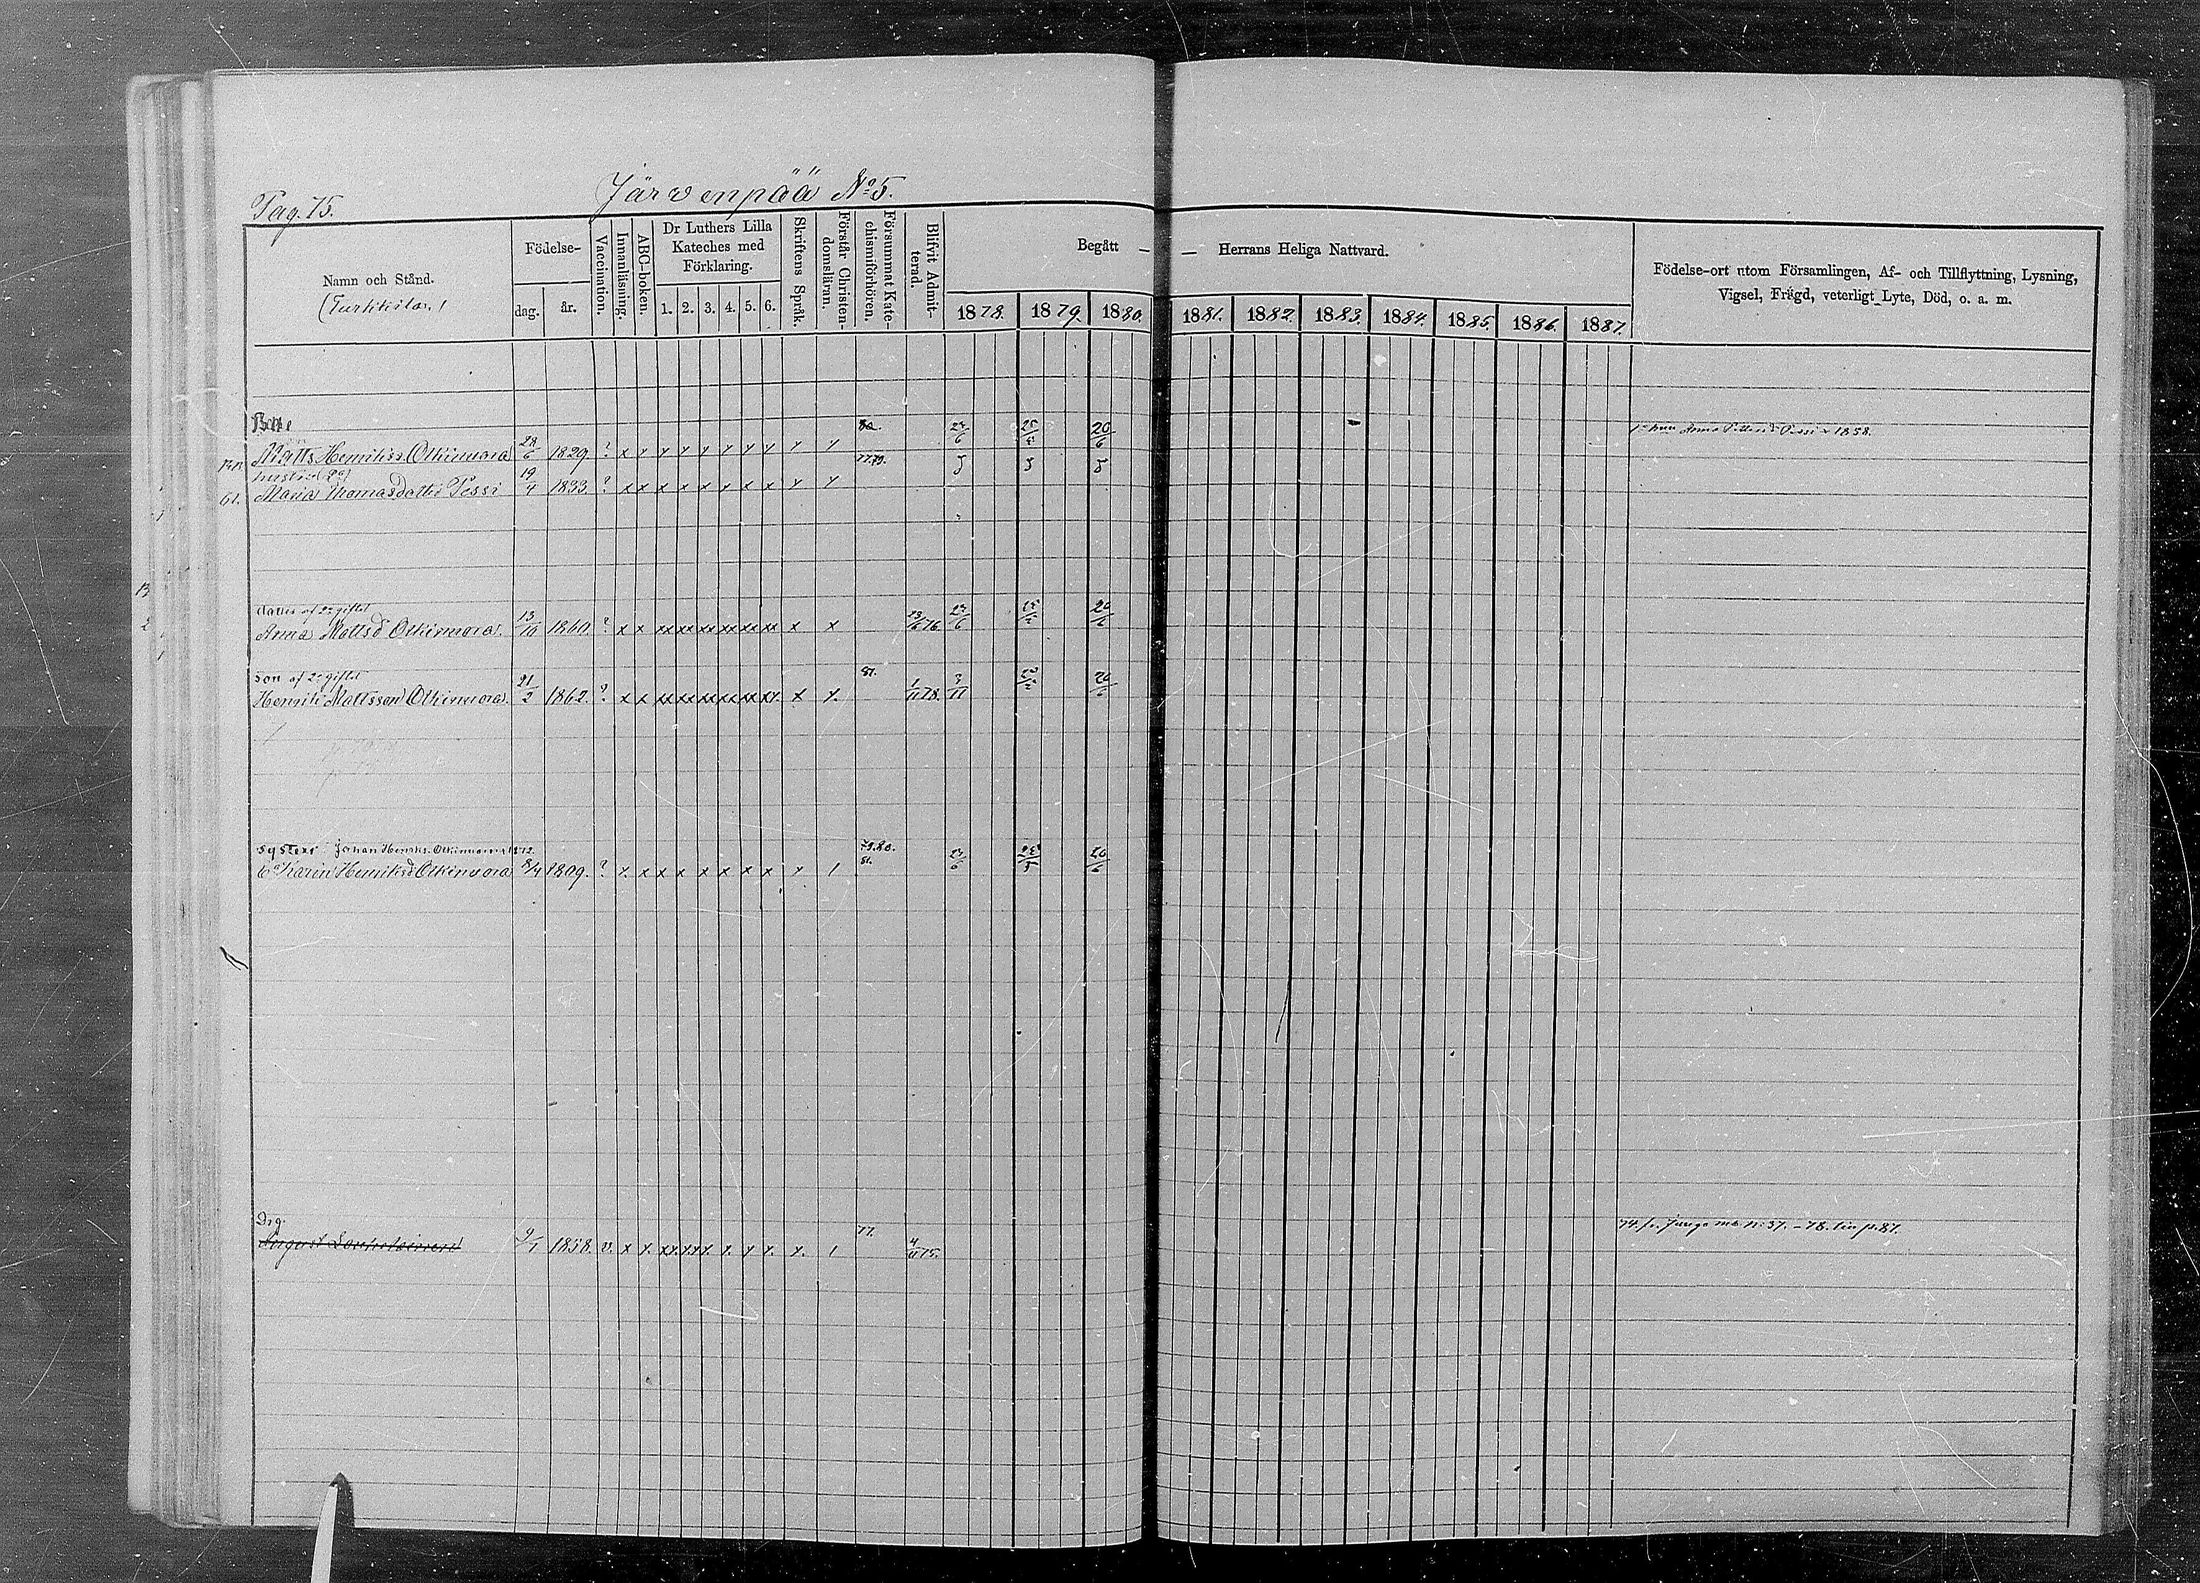 Pag. 75. Järvenpää No 5.
Namn och Stånd.
Födelse-
dag. år.
Vaccination.
Innanläsning.
ABC-boken.
Dr Luthers Lilla
Kateches med
Förklaring.
1. 2. 3. 4. 5. 6.
Skriftens Språk.
Förstår Christen-
domsläran.
Försummat Kate-
chismiförhören.
Blifvit Admit-
terad.
Begått — — Herrans Heliga Nattvard.
1878. 1879. 1880. 1881. 1882. 1883. 1884. 1885. 1886. 1887.
Födelse-ort utom Församlingen, Af- och Tillflyttning, Lysning,
Vigsel, Frägd, veterligt Lyte, Död, o. a. m.
Matts Henrikss. Olkinuora 28/6 1829. ? x
hustru (2a)
Maria Thomasdotter Pessi 19/4 1833. ? x x x x x x x x 77.79.
dotter af 2a giftet
Anna Mattsd Olkinuora. 13/10 1860. ? x x xx xx xx xx xx xx x x 76. 20/6
son af 2a giftet
Henrik Mattsson Olkinuora. 21/2 1862. ? x x xx xx xx xx xx xx. x x. 81. 1/11 78. 3/11 20/6
syster: Johan Henriks. Olkinuora 1872.
Ea Karin Henriksd Olkinuora 8/4 1809. ? x. x x x x x x x 79.80. 81. 20/6
Drg.
August 9/1 1858. v. x x. 77. 4/11 75.
74. fr. N: 37. – 78. till p. 87.